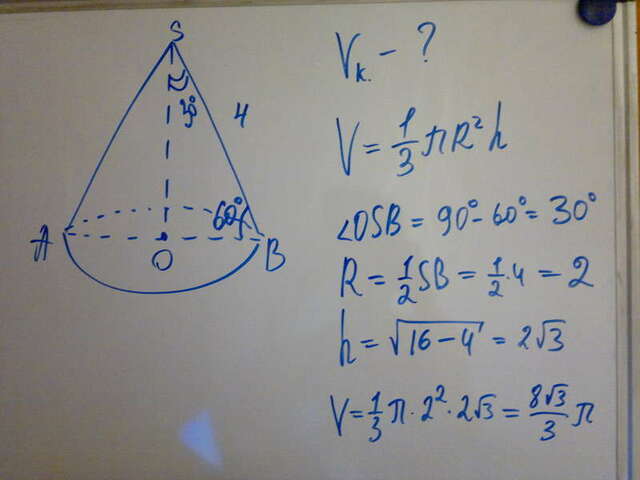 S
30°
4
60°
A
O
B
Vк. - ?
V = 1/3 πR²h
∠OSB = 90° - 60° = 30°
R = 1/2 SB = 1/2 · 4 = 2
h = √(16 - 4) = 2√3
V = 1/3 π · 2² · 2√3 = 8√3/3 π